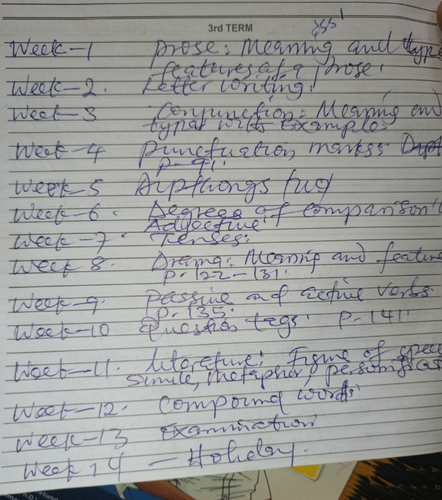 3rd TERM
JSS 1
Week-1 Prose: Meaning and type
features of a prose.
Week-2. Letter writing.
Week-3 Conjunction: Meaning and
types with Examples
Week-4 Punctuation marks
P-91.
Week 5 Dipthongs
Week-6. Degrees of comparison
Adjective.
Week-7. Tenses.
Week 8. Drama: Meaning and feature
P. 122-131.
Week-9. Passive and active verbs
P. 135.
Week-10 Question tags. P-141.
Week-11. Literature: Figure of speec
Simile, Metaphor,
Week-12. Compound words
Week-13 Examination
Week 14 - Holiday.